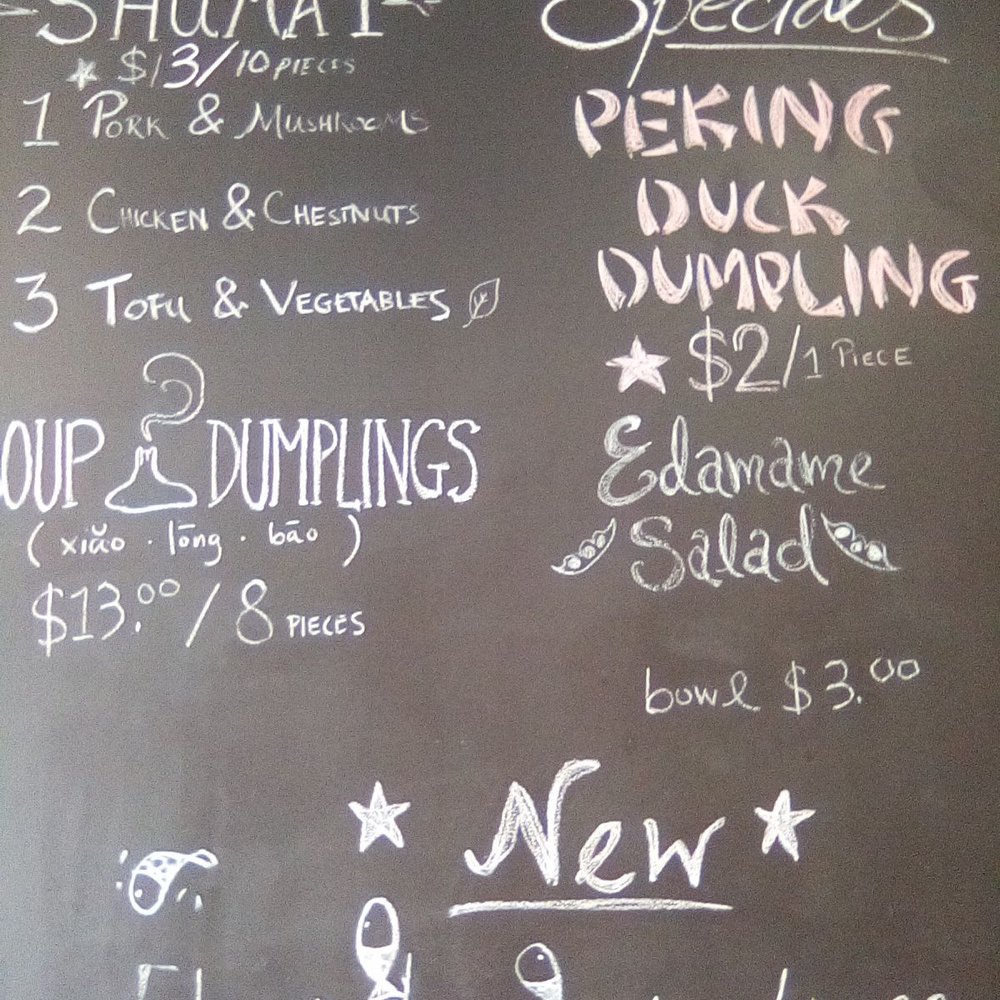 SHUMAI
$13/10 PIECES
1 PORK & MUSHROOMS
2 CHICKEN & CHESTNUTS
3 TOFU & VEGETABLES
OUP DUMPLINGS
(xiǎo · lōng · bāo)
$13.00 / 8 PIECES
Specials
PEKING
DUCK
DUMPLING
$2/1 PIECE
Edamame
Salad
bowl $3.00
New